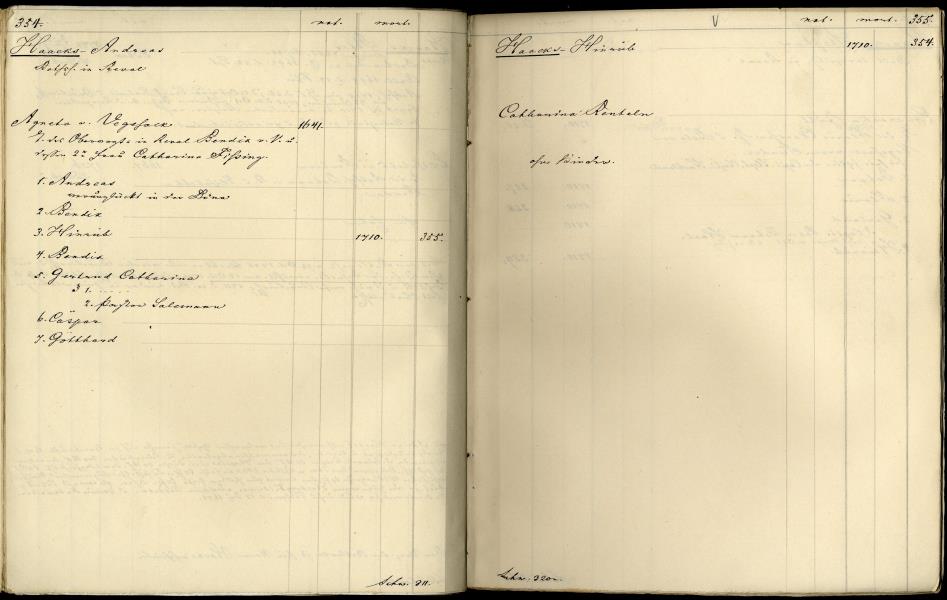 354.
nat. mort.
Haacks - Andreas
Rathsh. in Reval
Agneta v. Vegesack 1641.
T. des Obervogts in Reval Bendix v. V. u.
dessen 2r Frau Catharina Fissing.
1. Andreas
verunglückt in der Düna
2. Bendix
3. Hinrich 1710. 355.
4. Bendix
5. Gertrud Catharina
1. . . . . .
2. Pastor Salemann
6. Caspar
7. Gotthard
Schw. 311.
V nat. mort. 355.
Haacks - Hinrich 1710. 354.
Catharina Renteln
ohne Kinder.
Schw. 320.